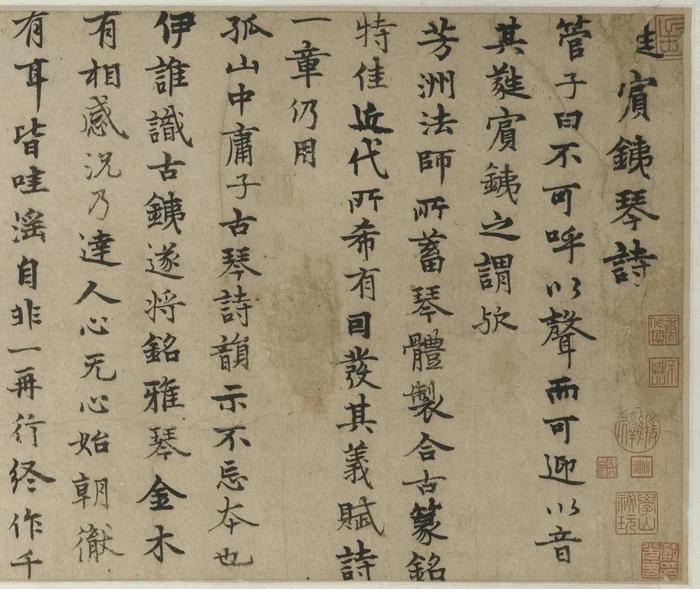 賓銕琴詩
管子曰不可呼以聲而可迎以音
其蕤賓銕之謂欤
芳洲法師所蓄琴體製合古篆銘
特佳近代所希有囙發其義賦詩
一章仍用
孤山中庸子古琴詩韻示不忘夲也
伊誰識古銕遂将銘雅琴金木
有相感況乃達人心无心始朝徹
有耳皆哇滛自非一再行終作千